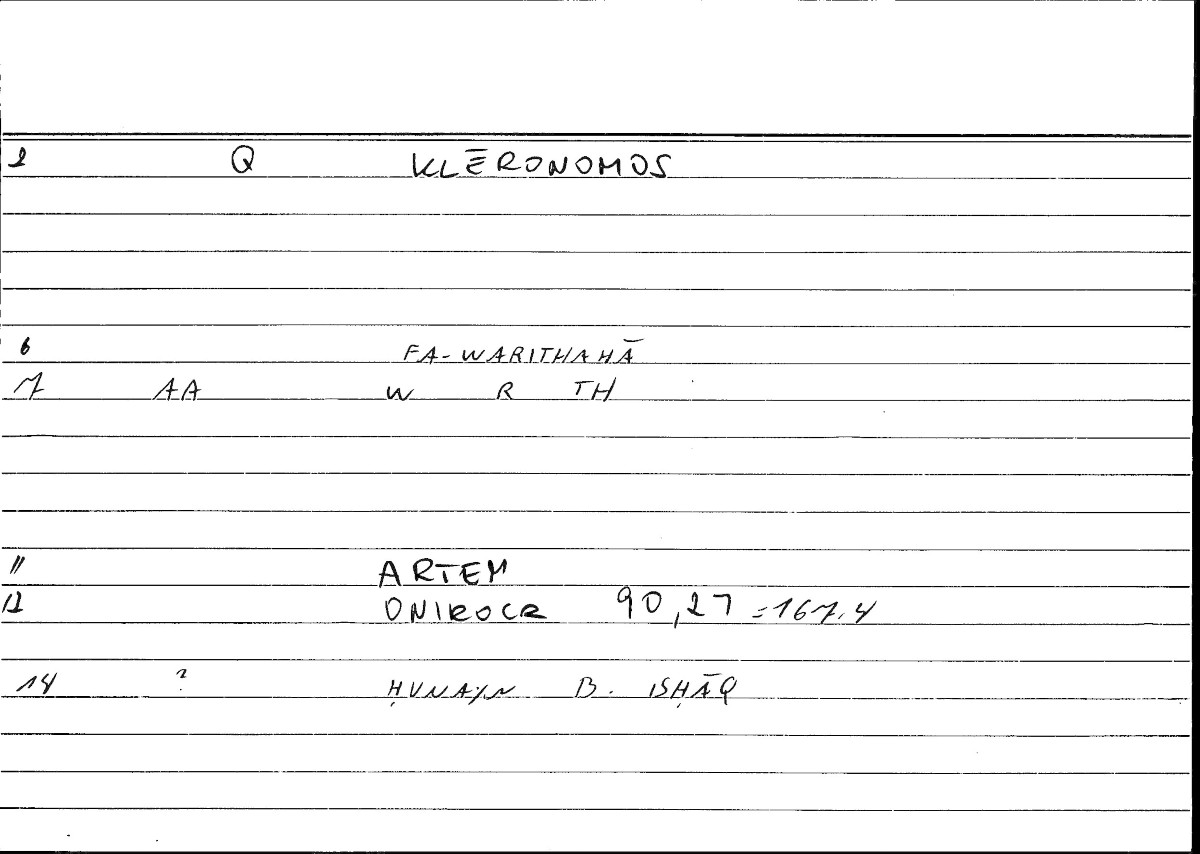 2 Q KLĒRONOMOS
6 FA-WARITHAHĀ
7 AA W R TH
11 ARTEM
12 ONIROCR 90,27 =167,4
14 ? ḤUNAYN B. ISḤĀQ